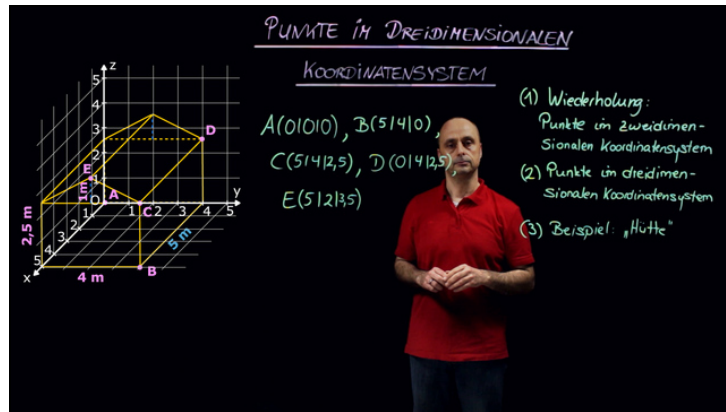 PUNKTE IM DREIDIMENSIONALEN
KOORDINATENSYSTEM
A(0|0|0), B(5|4|0),
C(5|4|2,5), D(0|4|2,5),
E(5|2|3,5)
(1) Wiederholung:
Punkte im zweidimen-
sionalen Koordinatensystem
(2) Punkte im dreidimen-
sionalen Koordinatensystem
(3) Beispiel: „Hütte"
z
5
4
3
2
1
0
D
E
1m
A
C
1
2
3
4
5
y
1
2
3
4
5
x
2,5 m
4 m
B
5 m